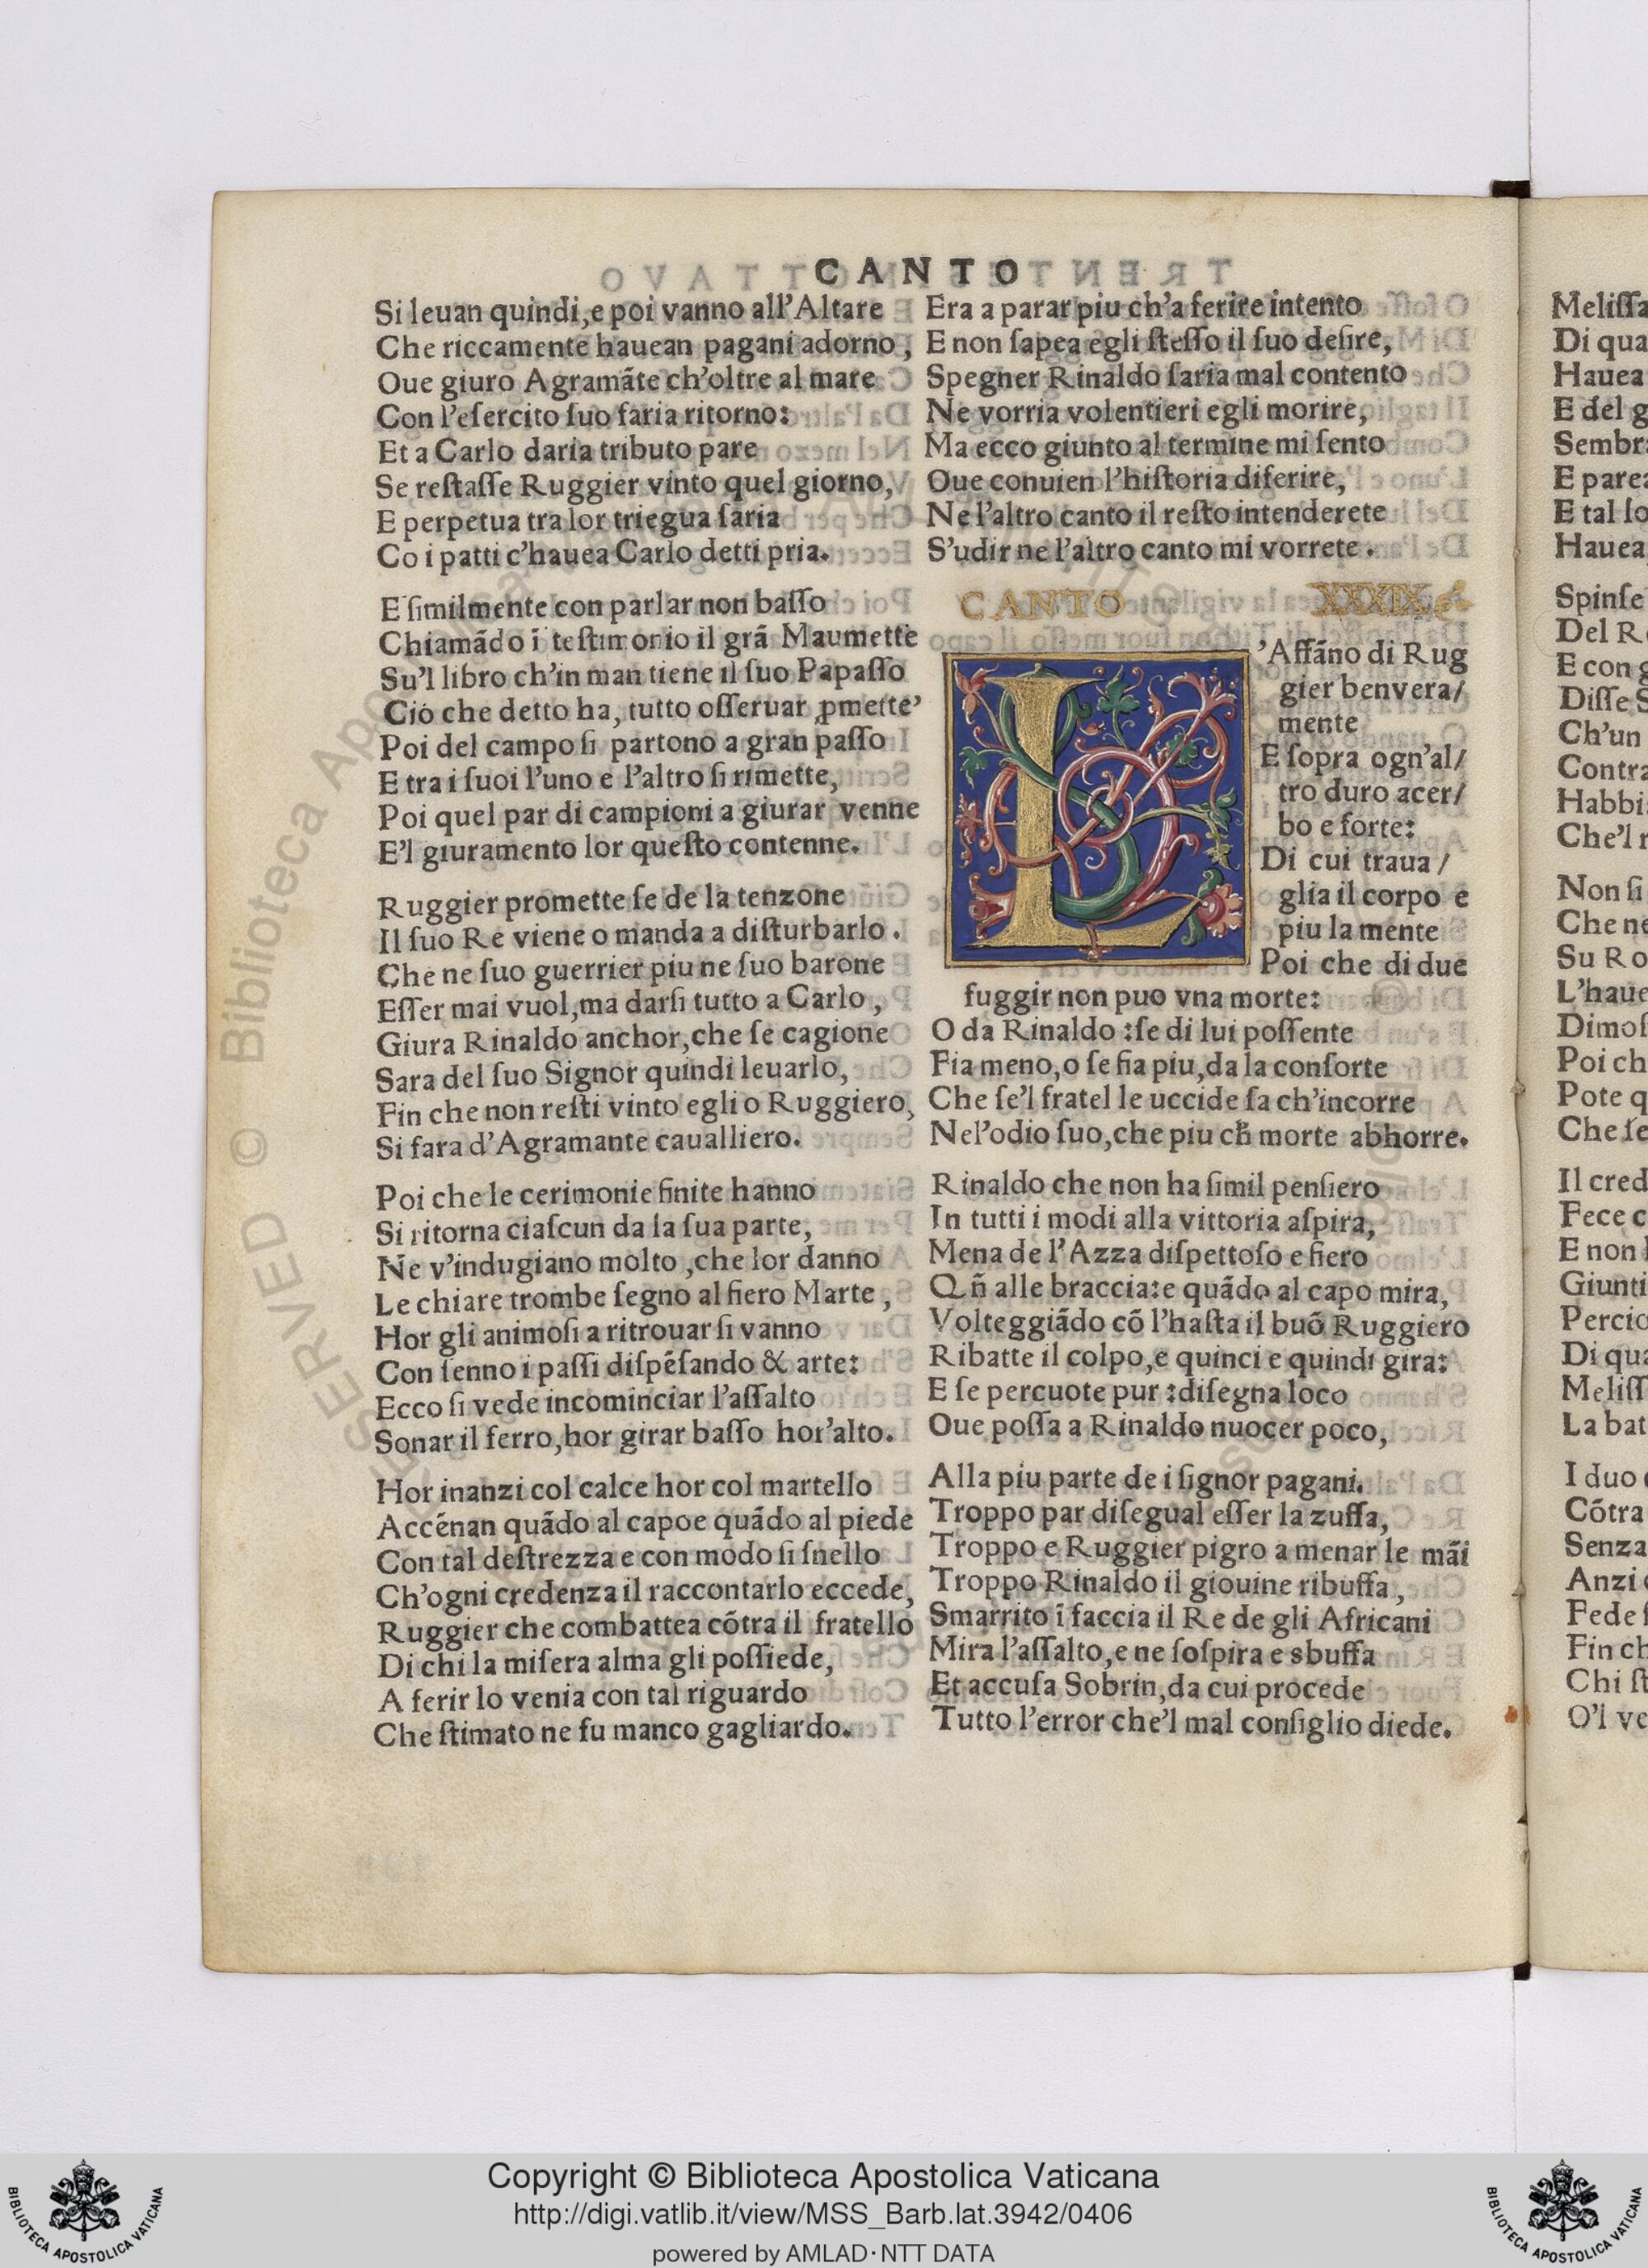 CANTO
Si leuan quindi,e poi vanno all'Altare
Che riccamente hauean pagani adorno,
Oue giuro Agramãte ch'oltre al mare
Con l'eſercito ſuo faria ritorno:
Et a Carlo daria tributo pare
Se reſtaſſe Ruggier vinto quel giorno,
E perpetua tra lor triegua ſaria
Co i patti c'hauea Carlo detti pria.
E ſimilmente con parlar non baſſo
Chiamãdo ĩ teſtimonio il grã Maumette
Su'l libro ch'in man tiene il ſuo Papaſſo
Ciò che detto ha, tutto oſſeruar ꝓmette'
Poi del campo ſi partono a gran paſſo
E tra i ſuoi l'uno e l'altro ſi rimette,
Poi quel par di campioni a giurar venne
E'l giuramento lor queſto contenne.
Ruggier promette ſe de la tenzone
Il ſuo Re viene o manda a diſturbarlo.
Che ne ſuo guerrier piu ne ſuo barone
Eſſer mai vuol,ma darſi tutto a Carlo,
Giura Rinaldo anchor,che ſe cagione
Sara del ſuo Signor quindi leuarlo,
Fin che non reſti vinto egli o Ruggiero,
Si fara d'Agramante caualliero.
Poi che le cerimonie finite hanno
Si ritorna ciaſcun da la ſua parte,
Ne v'indugiano molto,che lor danno
Le chiare trombe ſegno al fiero Marte,
Hor gli animoſi a ritrouar ſi vanno
Con ſenno i paſſi diſpẽſando & arte:
Ecco ſi vede incominciar l'aſſalto
Sonar il ferro,hor girar baſſo hor'alto.
Hor inanzi col calce hor col martello
Accẽnan quãdo al capo e quãdo al piede
Con tal deſtrezza e con modo ſi ſnello
Ch'ogni credenza il raccontarlo eccede,
Ruggier che combattea cõtra il fratello
Di chi la miſera alma gli poſſiede,
A ferir lo venia con tal riguardo
Che ſtimato ne fu manco gagliardo.
Era a parar piu ch'a ferire intento
E non ſapea egli ſteſſo il ſuo deſire,
Spegner Rinaldo ſaria mal contento
Ne vorria volentieri egli morire,
Ma ecco giunto al termine mi ſento
Oue conuien l'hiſtoria diferire,
Ne l'altro canto il reſto intenderete
S'udir ne l'altro canto mi vorrete.
CANTO XXXIX
L'Affãno di Rug
gier ben vera/
mente
E ſopra ogn'al/
tro duro acer/
bo e forte:
Di cui traua/
glia il corpo e
piu la mente
Poi che di due
fuggir non puo vna morte:
O da Rinaldo:ſe di lui poſſente
Fia meno,o ſe fia piu,da la conſorte
Che ſe'l fratel le uccide ſa ch'incorre
Nel'odio ſuo,che piu cħ morte abhorre.
Rinaldo che non ha ſimil penſiero
In tutti i modi alla vittoria aſpira,
Mena de l'Azza diſpettoſo e fiero
Qñ alle braccia:e quãdo al capo mira,
Volteggiãdo cõ l'haſta il buõ Ruggiero
Ribatte il colpo,e quinci e quindi gira:
E ſe percuote pur:diſegna loco
Oue poſſa a Rinaldo nuocer poco,
Alla piu parte de i ſignor pagani.
Troppo par diſegual eſſer la zuffa,
Troppo e Ruggier pigro a menar le mãi
Troppo Rinaldo il giouine ribuffa,
Smarrito ĩ faccia il Re de gli Africani
Mira l'aſſalto,e ne ſoſpira e sbuffa
Et accuſa Sobrin,da cui procede
Tutto l'error che'l mal conſiglio diede.
Meliſſa
Di qua
Hauea
E del g
Sembr
E parea
E tal ſo
Hauea
Spinſe
Del R
E con g
Diſſe S
Ch'un
Contra
Habbi
Che'l r
Non ſi
Che ne
Su Ro
L'haue
Dimoſ
Poi ch
Pote q
Che ſe
Il cred
Fece c
E non
Giunti
Percio
Di qua
Meliſſ
La bat
I duo
Cõtra
Senza
Anzi
Fede ſ
Fin ch
Chi ſt
O'l ve
Copyright © Biblioteca Apostolica Vaticana
http://digi.vatlib.it/view/MSS_Barb.lat.3942/0406
powered by AMLAD·NTT DATA
BIBLIOTECA APOSTOLICA VATICANA
BIBLIOTECA APOSTOLICA VATICANA